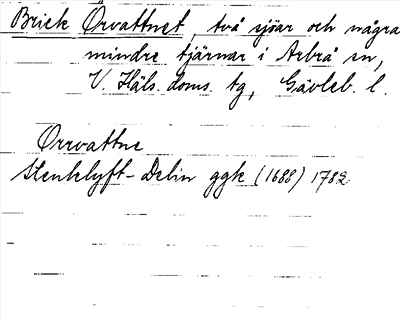 Brick Örvattnet, två sjöar och några
mindre tjärnar i Arbrå sn,
V. Häls. doms. tg, Gävleb. l.
Örrvattne
Stenklyft-Delin ggk (1688) 1782